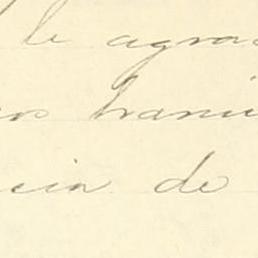 le agra
os trami
cia de